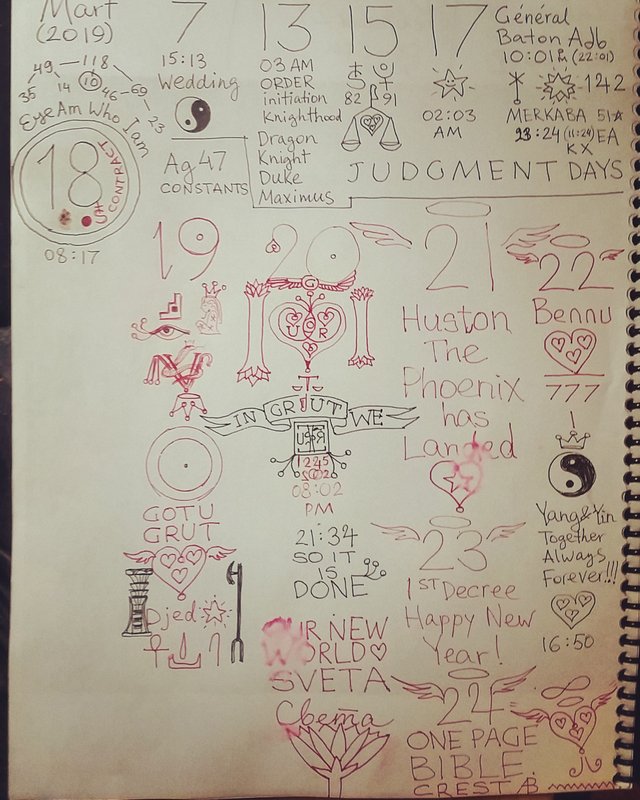 Mart
(2019)
49 118
35 14 10 46 69 23
EyeAm Who Iam
18
CONTRACT
08:17
7
15:13
Wedding
Ag 47
CONSTANTS
13
03 AM
ORDER
initiation
Knighthood
Dragon
Knight
Duke
Maximus
15
82 91
17
02:03
AM
Général
Baton Adb
(22:01)
142
MERKABA 51☆
23:24 (11:24) EA
KX
JUDGMENT DAYS
19
GOTU
GRUT
Djed
20
G
IN GRUT WE
08:02
PM
21:34
SO IT
IS
DONE
OUR NEW
WORLD♡
SVETA
Света
21
Huston
The
Phoenix
has
Landed
22
Bennu
777
Yang&Yin
Together
Always
Forever!!!
16:50
23
1ST Decree
Happy New
Year!
24
ONE PAGE
BIBLE
CREST AB